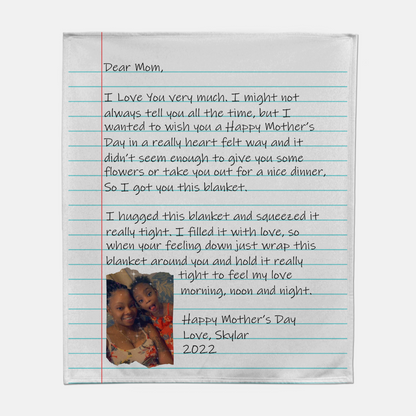 Dear Mom,
I Love You very much. I might not
always tell you all the time, but I
wanted to wish you a Happy Mother's
Day in a really heart felt way and it
didn't seem enough to give you some
flowers or take you out for a nice dinner,
So I got you this blanket.
I hugged this blanket and squeezed it
really tight. I filled it with love, so
when your feeling down just wrap this
blanket around you and hold it really
tight to feel my love
morning, noon and night.
Happy Mother's Day
Love, Skylar
2022